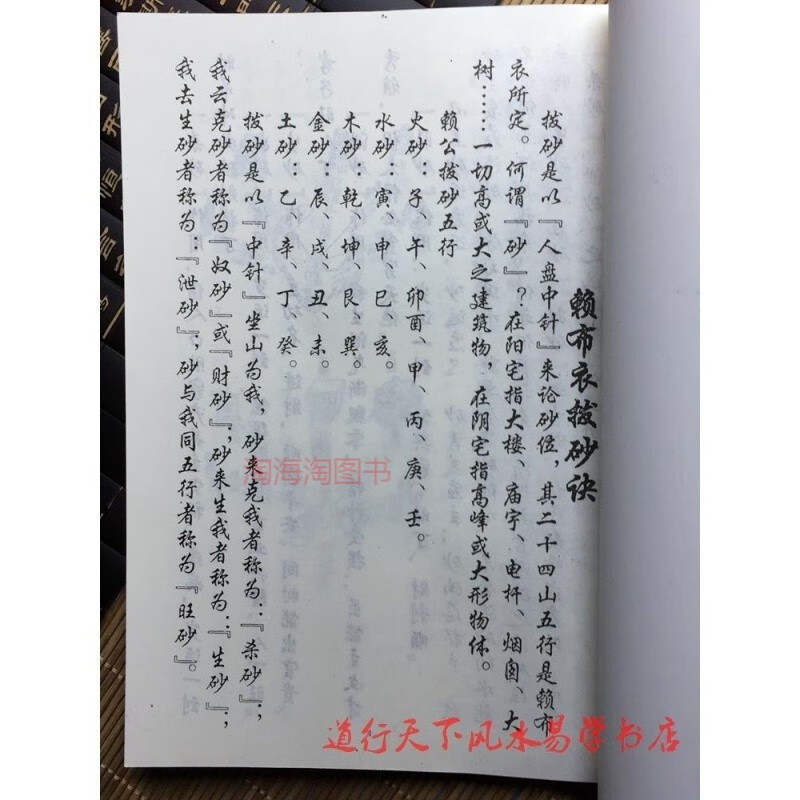 赖布衣拨砂诀
拨砂是以『人盘中针』来论砂位，其二十四山五行是赖布
衣所定。何谓『砂』？在阳宅指大楼、庙宇、电杆、烟囱、大
树……一切高或大之建筑物，在阴宅指高峰或大形物体。
赖公拨砂五行
火砂：子、午、卯酉、甲、丙、庚、壬。
水砂：寅、申、巳、亥。
木砂：乾、坤、艮、巽。
金砂：辰、戌、丑、未。
土砂：乙、辛、丁、癸。
拨砂是以『中针』坐山为我，砂来克我者称为：『杀砂』；
我去克砂者称为『奴砂』或『财砂』；砂来生我者称为：『生砂』；
我去生砂者称为：『泄砂』；砂与我同五行者称为『旺砂』。
淘海淘图书
道行天下风水易学书店